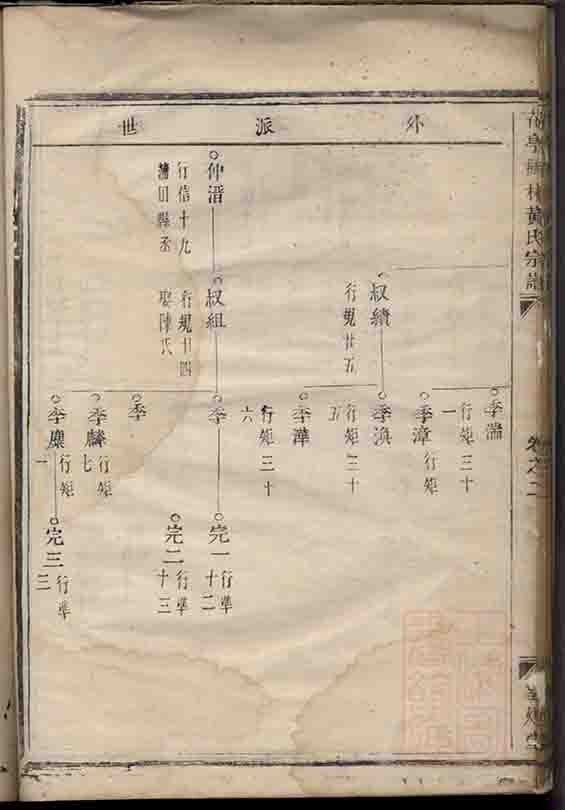 外派世
黃氏宗譜
卷之二
季湍
行矩三十
一
季漳
行矩
叔續
行規廿五
季渙
行矩三十
五
季澕
行矩三十
六
仲湑
行信十九
縣丞
叔組
行規十四
娶陳氏
季
季
季麟
行矩
七
季麇
行矩
一
完一
行準
十二
完二
行準
十三
完三
行準
三